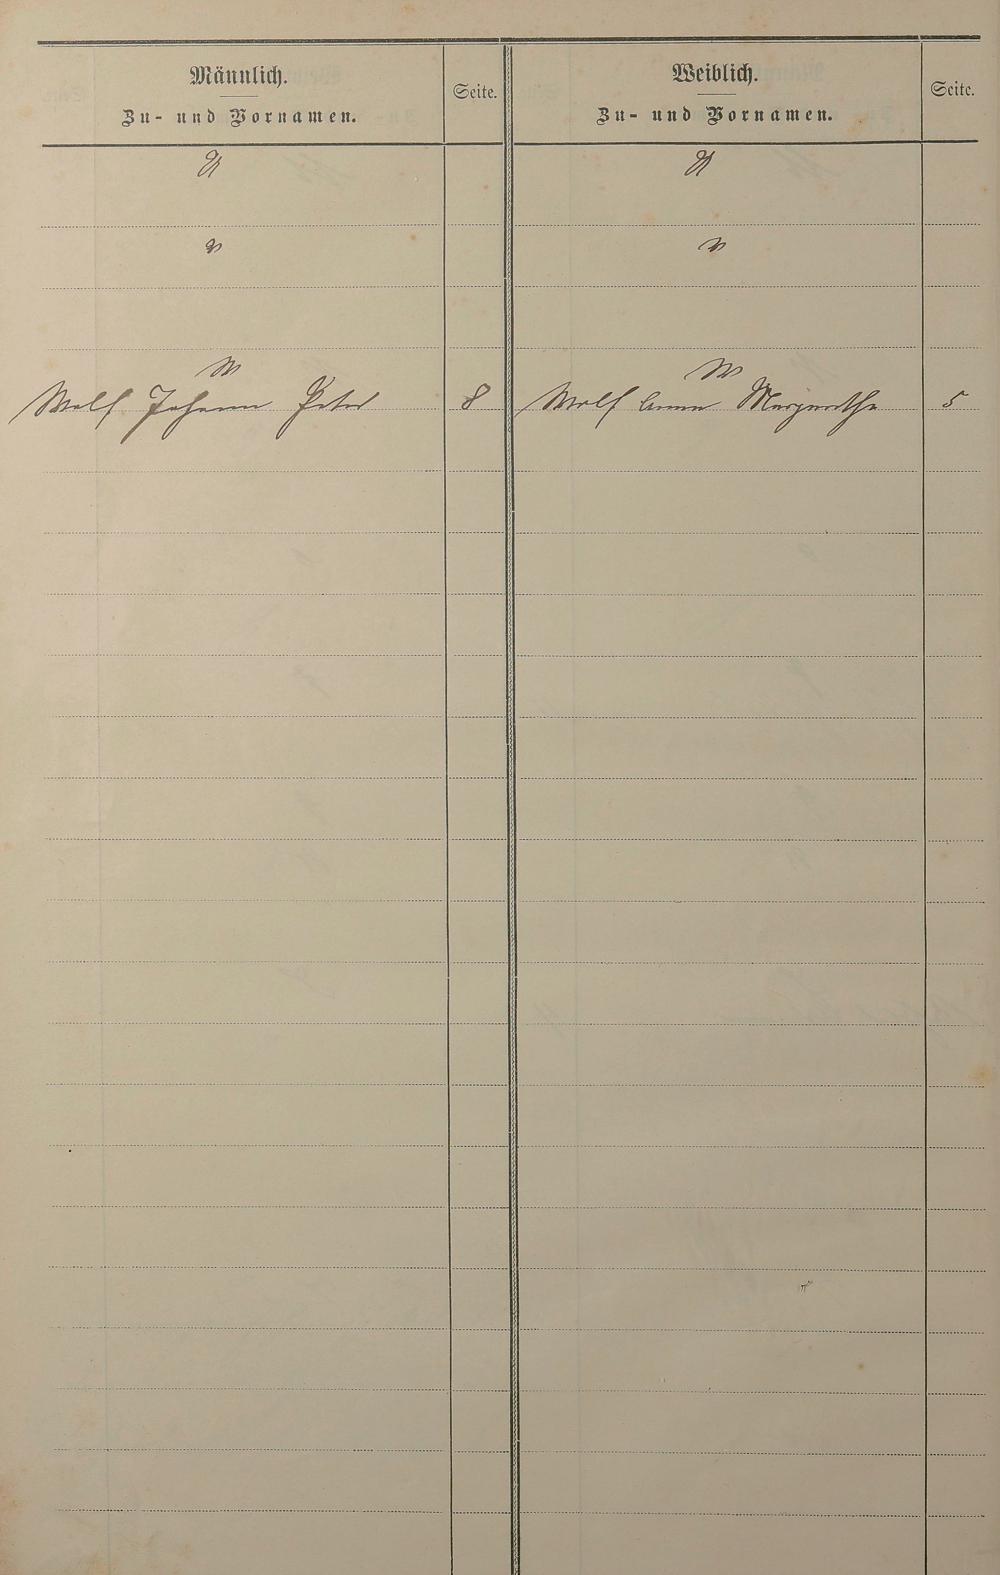 Männlich.
Zu- und Vornamen.
Seite.
Weiblich.
Zu- und Vornamen.
Seite.
U
U
V
V
W
W
Wolf Johann Peter 8
Wolf Anna Margaretha 5